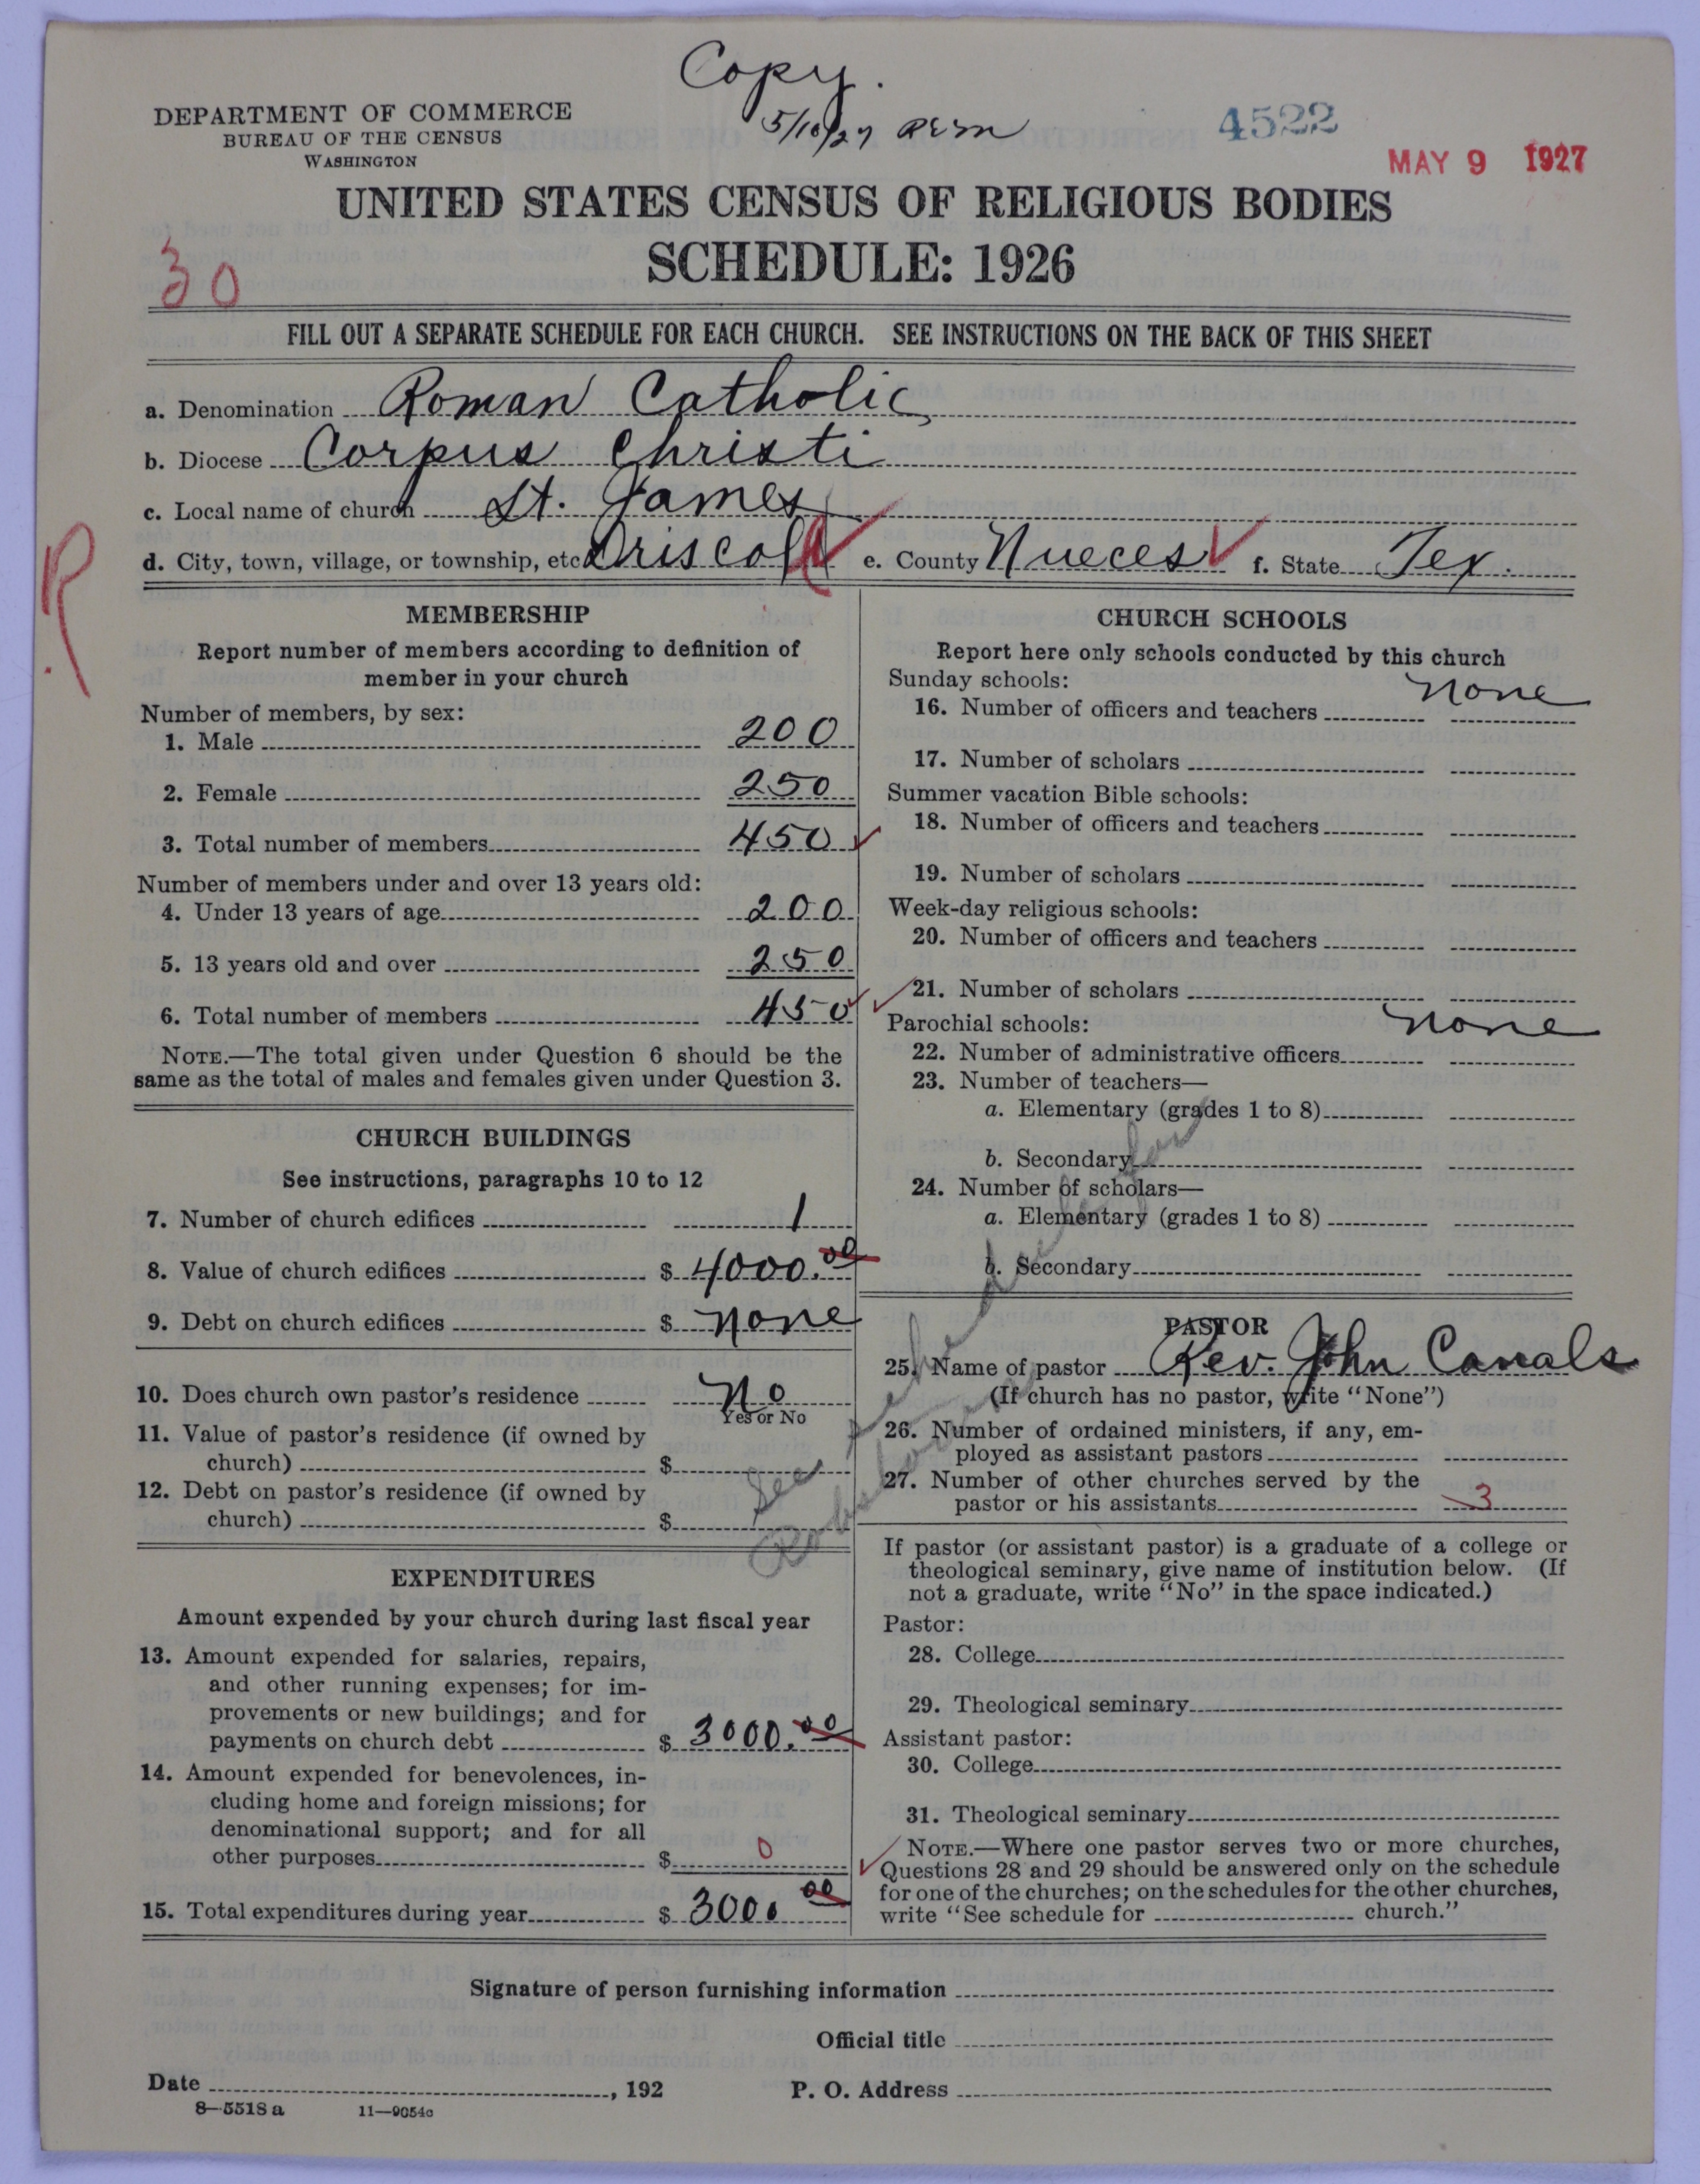 Copy.
5/10/27 REM
4522
MAY 9 1927
DEPARTMENT OF COMMERCE
BUREAU OF THE CENSUS
WASHINGTON
UNITED STATES CENSUS OF RELIGIOUS BODIES
SCHEDULE: 1926
30
FILL OUT A SEPARATE SCHEDULE FOR EACH CHURCH. SEE INSTRUCTIONS ON THE BACK OF THIS SHEET
a. Denomination Roman Catholic
b. Diocese Corpus Christi
c. Local name of church St. James
d. City, town, village, or township, etc. Driscoll e. County Nueces f. State Tex.
R
MEMBERSHIP
Report number of members according to definition of
member in your church
Number of members, by sex:
1. Male 200
2. Female 250
3. Total number of members 450
Number of members under and over 13 years old:
4. Under 13 years of age 200
5. 13 years old and over 250
6. Total number of members 450
NOTE.—The total given under Question 6 should be the
same as the total of males and females given under Question 3.
CHURCH BUILDINGS
See instructions, paragraphs 10 to 12
7. Number of church edifices 1
8. Value of church edifices $ 4000.00
9. Debt on church edifices $ none
10. Does church own pastor's residence No
Yes or No
11. Value of pastor's residence (if owned by
church) $
12. Debt on pastor's residence (if owned by
church) $
EXPENDITURES
Amount expended by your church during last fiscal year
13. Amount expended for salaries, repairs,
and other running expenses; for im-
provements or new buildings; and for
payments on church debt $ 3000.00
14. Amount expended for benevolences, in-
cluding home and foreign missions; for
denominational support; and for all
other purposes $ 0
15. Total expenditures during year $ 3000 00
CHURCH SCHOOLS
Report here only schools conducted by this church
Sunday schools:
none
16. Number of officers and teachers
17. Number of scholars
Summer vacation Bible schools:
18. Number of officers and teachers
19. Number of scholars
Week-day religious schools:
20. Number of officers and teachers
21. Number of scholars
Parochial schools: none
22. Number of administrative officers
23. Number of teachers—
a. Elementary (grades 1 to 8)
b. Secondary
24. Number of scholars—
a. Elementary (grades 1 to 8)
b. Secondary
See schedule for
PASTOR
25. Name of pastor Rev. John Canals
(If church has no pastor, write "None")
26. Number of ordained ministers, if any, em-
ployed as assistant pastors
27. Number of other churches served by the
pastor or his assistants 3
If pastor (or assistant pastor) is a graduate of a college or
theological seminary, give name of institution below. (If
not a graduate, write "No" in the space indicated.)
Pastor:
28. College
29. Theological seminary
Assistant pastor:
30. College
31. Theological seminary
NOTE.—Where one pastor serves two or more churches,
Questions 28 and 29 should be answered only on the schedule
for one of the churches; on the schedules for the other churches,
write "See schedule for church."
Signature of person furnishing information
Official title
Date , 192 P. O. Address
8—5518 a 11—9054c